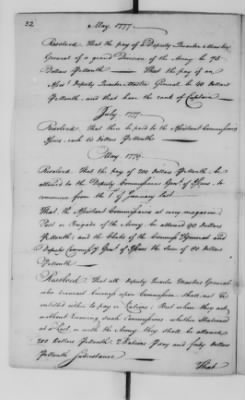 32
May 1777
Resolved, That the pay of a Deputy Quarter Master
General of a grand Division of the Army be 75
Dollars Pr Month — That the pay of an
Asst Deputy Quarter Master General be 40 Dollars
Pr Month, and that have the rank of Captain
July 1777
Resolved That there be paid to the Assistant Commissaries
Issues, each 60 Dollars Pr Month
May 1779
Resolved, That the pay of 200 Dollars Pr Month, be
allowed to the Deputy Commissaries Genl of Issues, to
commence from the 1st of January last
That the Assistant Commissaries at every magazine
Post or Brigade of the Army, be allowed 90 Dollars
Pr Month, and the Clerks of the Commissy General and
Deputy Commissy Genl of Issues the Sum of 60 Dollars
Pr Month
Resolved That all Deputy Quarter Masters General
who transact business upon Commission shall not be
entitled either to pay or Rations; But where they act
without drawing such Commissions whether Stationed
at a Post, or with the Army, they shall be allowed
200 Dollars Pr Month, 2 Rations Pr day and fifty dollars
Pr Month Subsistance
That